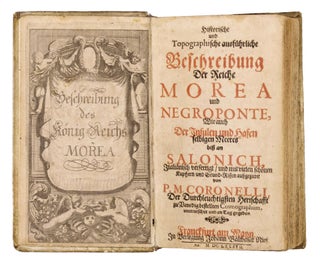 Beschreibung
des
König Reichs
MOREA
Historische
und
Topographische ausführliche
Beschreibung
Der Reiche
MOREA
und
NEGROPONTE,
Wie auch
Der Insulen und Hafen
selbigen Meeres
biß an
SALONICH,
Italiänisch verfertigt / und mit vielen schönen
Kupffern und Grund-Rissen außgeziert
von
P. M. CORONELLI,
Der Durchleuchtigsten Herrschafft
zu Venedig bestellten Cosmographum,
und an Tag gegeben.
Franckfurt am Mayn,
In Verlegung Johann